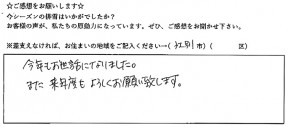 ☆ご感想をお願いします☆
今シーズンの排雪はいかがでしたか？
お客様の声が、私たちの原動力になっています。ぜひ、ご感想をお聞かせ下さい。
※差支えなければ、お住まいの地域をご記入ください→(江別市)(　　　区)
今年もお世話になりました。
また来年度もよろしくお願い致します。